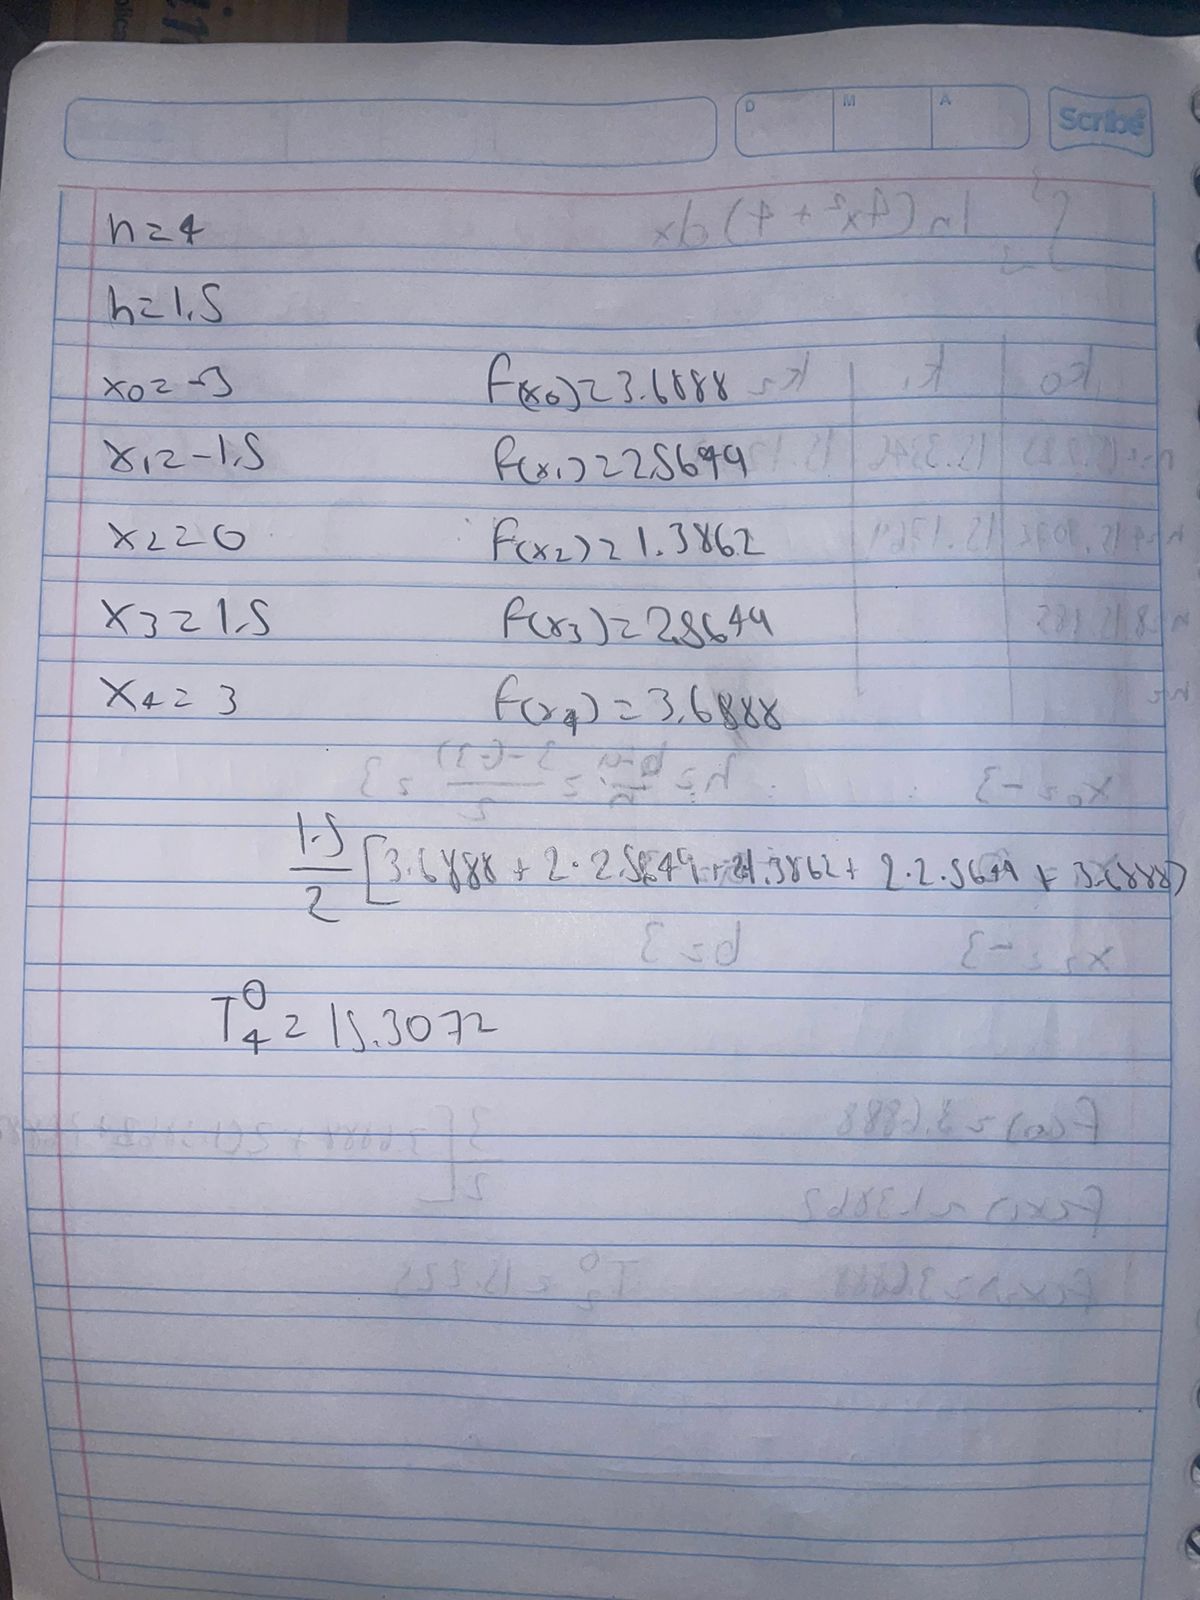 D M A Scribe
n=4
h=1.5
x0=-3 f(x0)=3.6888
x1=-1.5 f(x1)=2.5649
x2=0 f(x2)=1.3862
x3=1.5 f(x3)=2.5649
x4=3 f(x4)=3.6888
1.5/2 [3.6888 + 2·2.5649 + 2·1.3862 + 2·2.5649 + 3.6888]
T4^0=15.3072